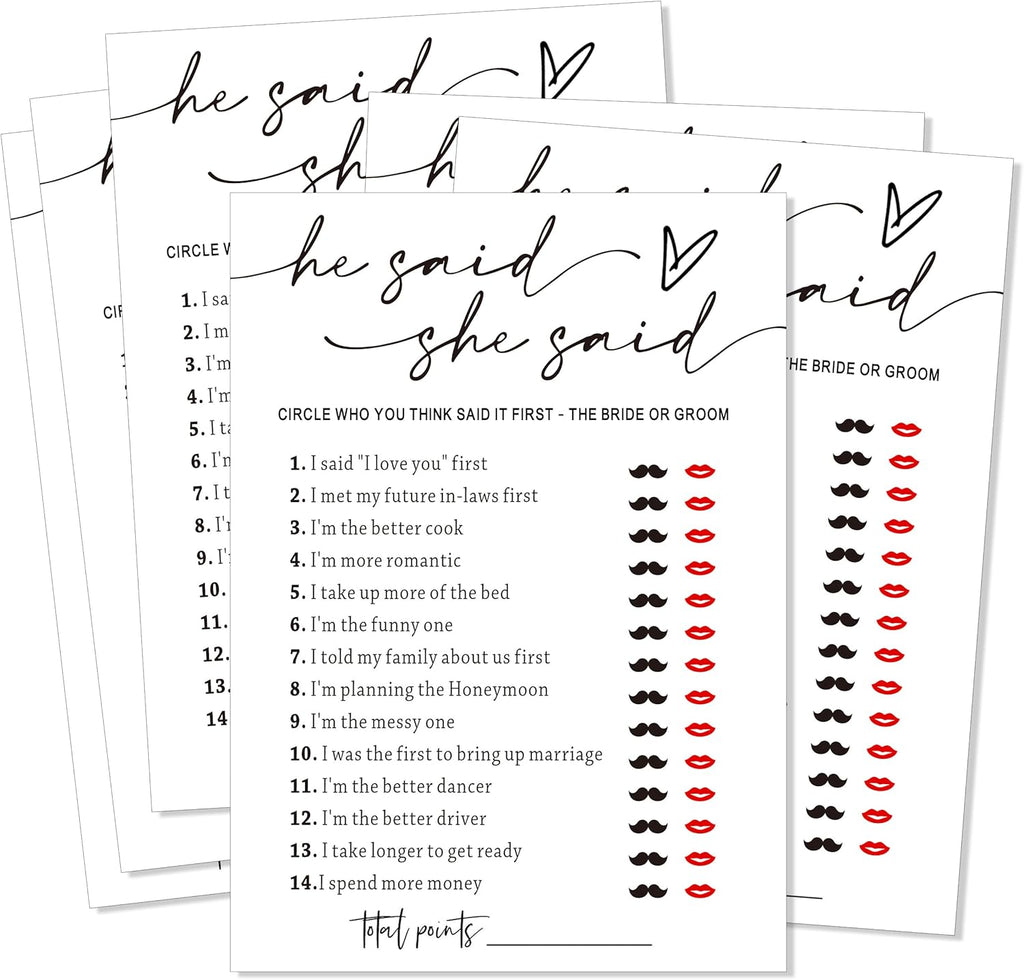 he said
sh
h
he said
said
he said
she said
CIRCLE W
CIR
THE BRIDE OR GROOM
CIRCLE WHO YOU THINK SAID IT FIRST - THE BRIDE OR GROOM
1. I sa
2. I m
3. I'm
4. I'm
5. I ta
6. I'm
7. I t
8. I'm
9. I'
10.
11.
12.
13.
14
1. I said "I love you" first
2. I met my future in-laws first
3. I'm the better cook
4. I'm more romantic
5. I take up more of the bed
6. I'm the funny one
7. I told my family about us first
8. I'm planning the Honeymoon
9. I'm the messy one
10. I was the first to bring up marriage
11. I'm the better dancer
12. I'm the better driver
13. I take longer to get ready
14.I spend more money
total points